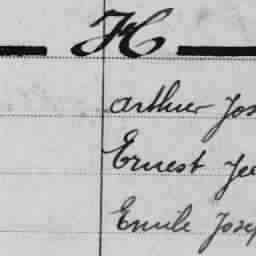 H
Arthur Jos
Ernest Je
Emile Josep